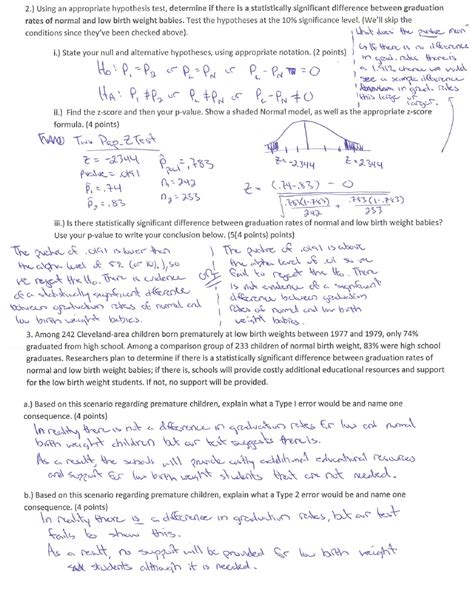 2.) Using an appropriate hypothesis test, determine if there is a statistically significant difference between graduation
rates of normal and low birth weight babies. Test the hypotheses at the 10% significance level. (We'll skip the
conditions since they've been checked above).
i.) State your null and alternative hypotheses, using appropriate notation. (2 points)
H₀: P₁ = P₂ or P_L = P_N or P_L - P_N = 0
H_A: P₁ ≠ P₂ or P_L ≠ P_N or P_L - P_N ≠ 0
what does the pvalue mean
If there is no difference
in grad. rates there is
a 1.91% chance we would
see a sample difference
in grad. rates
this large or
larger.
ii.) Find the z-score and then your p-value. Show a shaded Normal model, as well as the appropriate z-score
formula. (4 points)
Two Prop-Z Test
z = -2.344
pvalue = .0191
p̂₁ = .74
p̂₂ = .83
p̂pool = .783
n₁ = 242
n₂ = 233
z = -2.344
z = 2.344
z = (.74-.83) - 0
.783(1-.783)
242
+
.783(1-.783)
233
iii.) Is there statistically significant difference between graduation rates of normal and low birth weight babies?
Use your p-value to write your conclusion below. (5(4 points) points)
The pvalue of .0191 is lower than
the alpha level of 5% (or 10%), so
we reject the H₀. There is evidence
of a statistically significant difference
between graduation rates of normal and
low birth weight babies.
OR
The pvalue of .0191 is above
the alpha level of .01 so we
fail to reject the H₀. There
is not evidence of a significant
difference between graduation
rates of normal and low birth
weight babies.
3. Among 242 Cleveland-area children born prematurely at low birth weights between 1977 and 1979, only 74%
graduated from high school. Among a comparison group of 233 children of normal birth weight, 83% were high school
graduates. Researchers plan to determine if there is a statistically significant difference between graduation rates of
normal and low birth weight babies; if there is, schools will provide costly additional educational resources and support
for the low birth weight students. If not, no support will be provided.
a.) Based on this scenario regarding premature children, explain what a Type I error would be and name one
consequence. (4 points)
In reality there is not a difference in graduation rates for low and normal
birth weight children but our test suggests there is.
As a result, the schools will provide costly additional educational resources
and support for low birth weight students that are not needed.
b.) Based on this scenario regarding premature children, explain what a Type 2 error would be and name one
consequence. (4 points)
In reality there is a difference in graduation rates, but our test
fails to show this.
As a result, no support will be provided for low birth weight
students although it is needed.